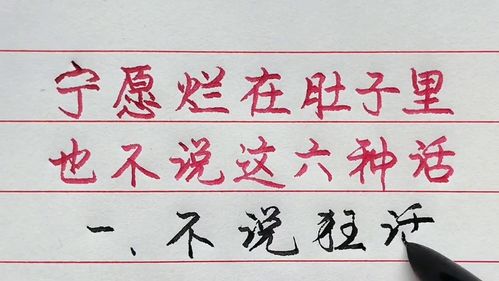 宁愿烂在肚子里
也不说这六种话
一、不说狂话